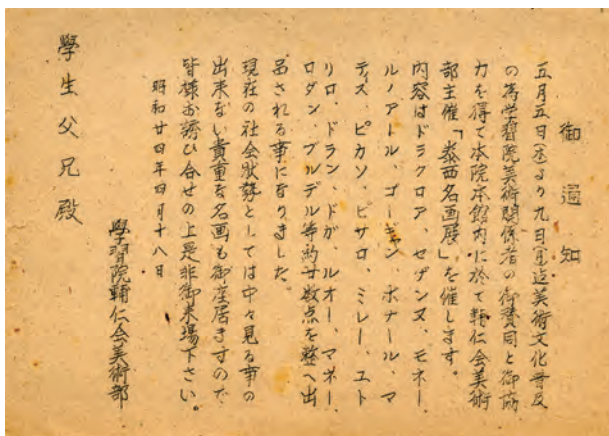 御通知
五月五日(木)より九日(月)迄美術文化普及
の為学習院美術関係者の御賛同と御協
力を得て本院本館内に於て輔仁会美術
部主催「泰西名画展」を催します。
内容はドラクロア、セザンヌ、モネー、
ルノアトル、ゴーギャン、ボナール、マ
ティス、ピカソ、ピサロ、ミレー、ユト
リロ、ドラン、ドガ、ルオー、マネー、
ロダン、ブルデル等約廿数点を整へ出
品される事になりました。
現在の社会状勢としては中々見る事の
出来ない貴重な名画も御座居ますので
皆様お誘ひ合せの上是非御来場下さい。
昭和廿四年四月十八日
學習院輔仁会美術部
學生父兄殿